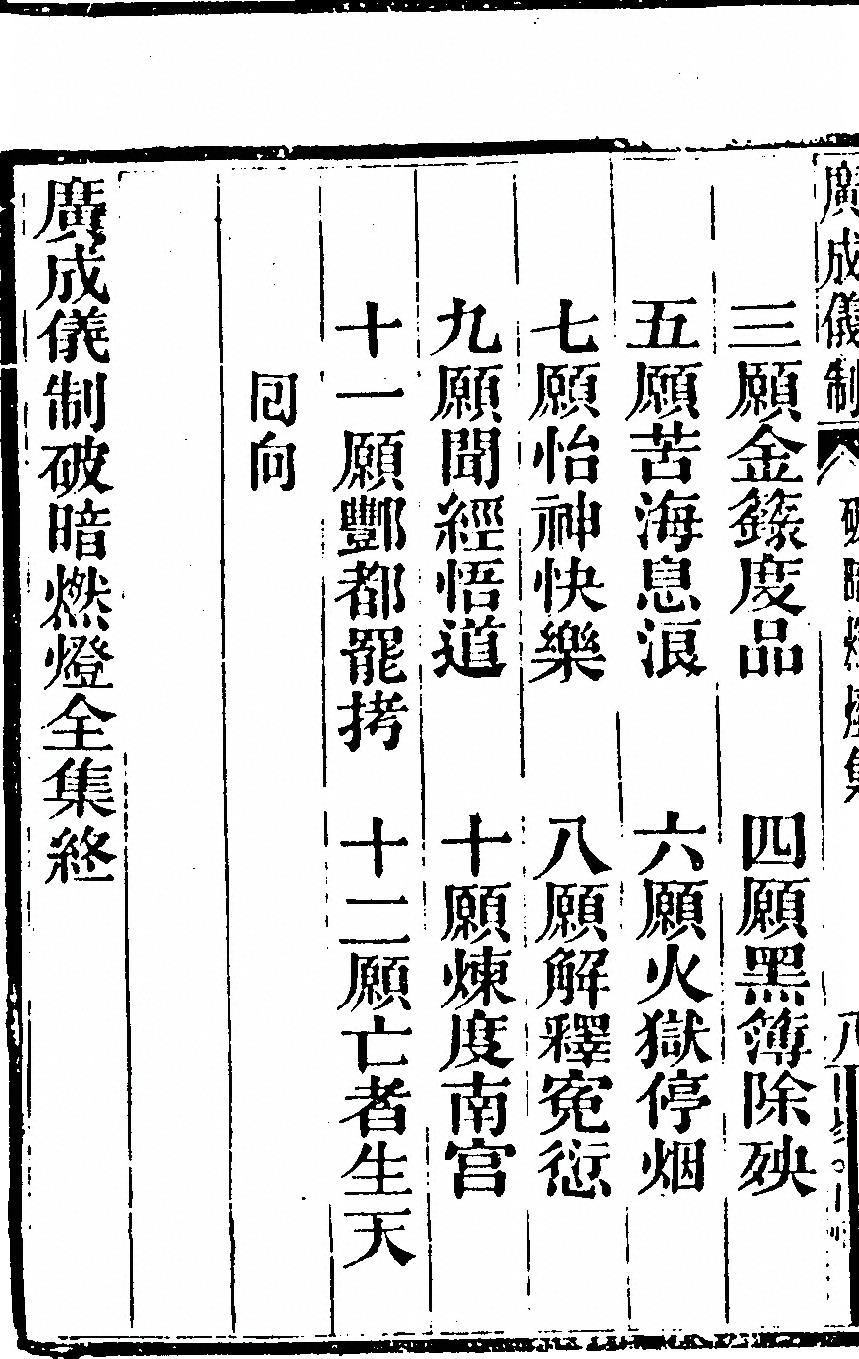 廣成儀制 破暗燃燈集 八
三願金籙度品 四願黑簿除殃
五願苦海息浪 六願火獄停烟
七願怡神快樂 八願解釋寃愆
九願聞經悟道 十願煉度南宮
十一願酆都罷拷 十二願亡者生天
囘向
廣成儀制破暗燃燈全集終